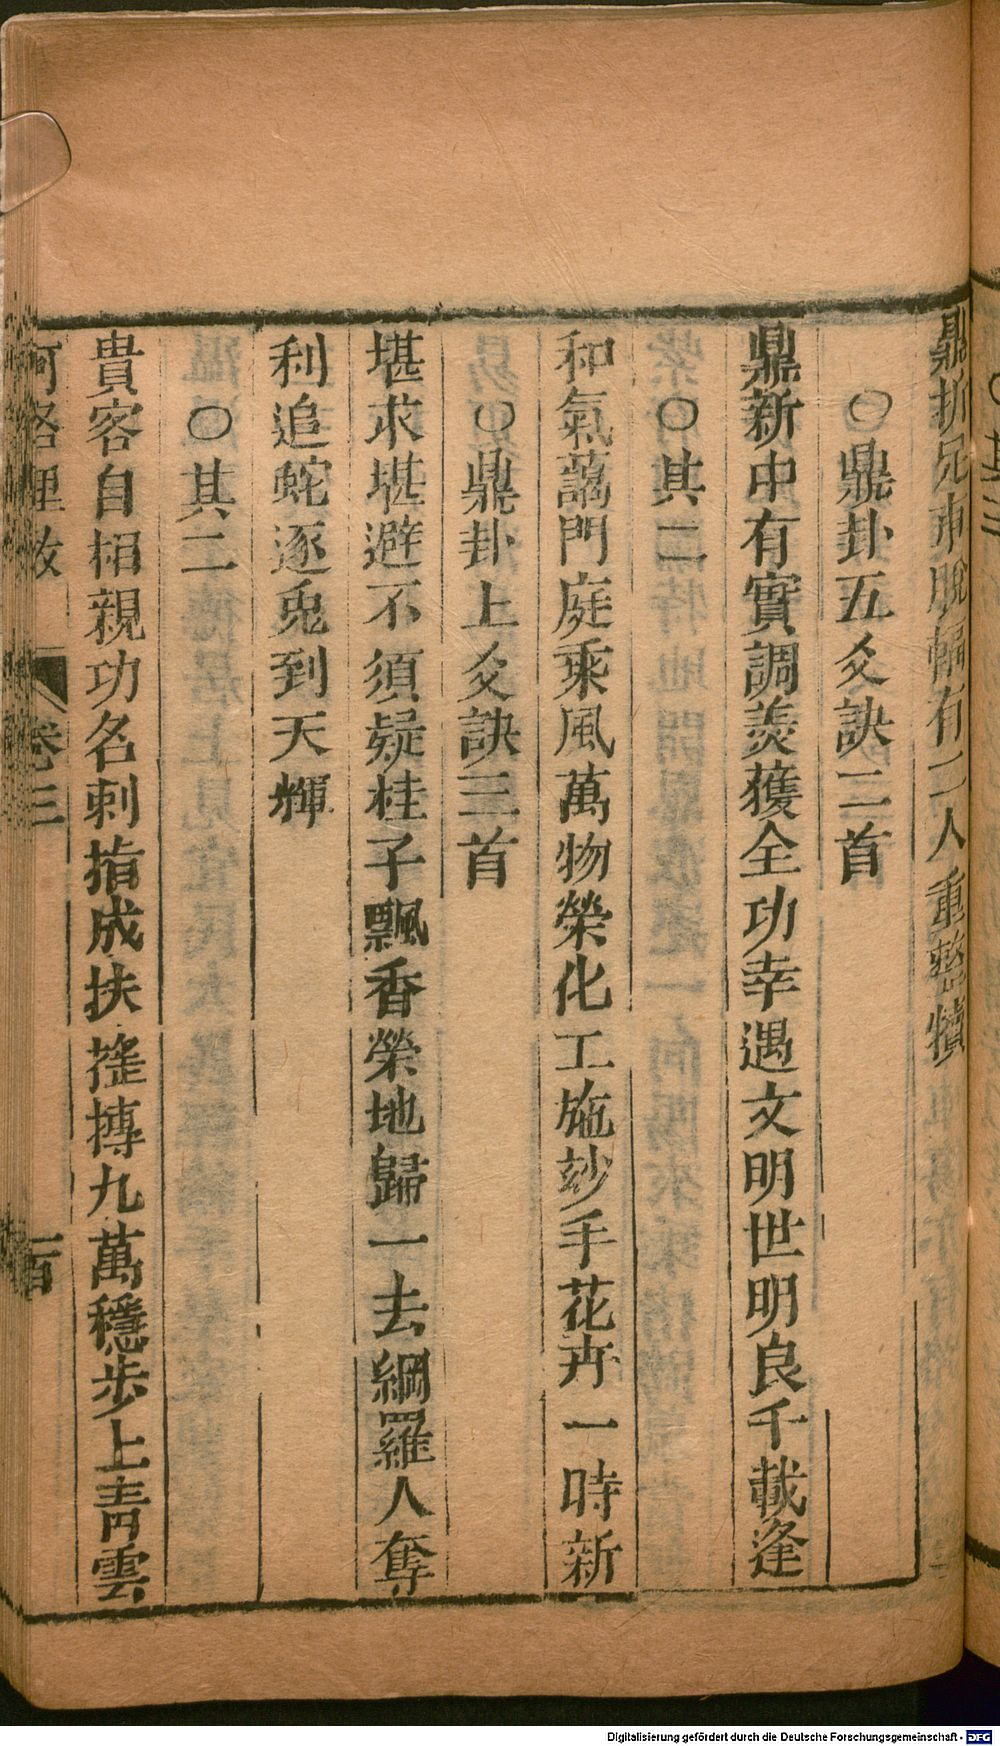 鼎折足車脫輻有二人重整犢
○鼎卦五爻訣二首
鼎新中有實調羨獲全功幸遇文明世明良千載逢
○其二
和氣藹門庭乘風萬物榮化工施妙手花卉一時新
○鼎卦上爻訣三首
堪求堪避不須疑桂子飄香榮地歸一去綱羅人奪
利追蛇逐兎到天輝
○其二
貴客自相親功名刺指成扶搖摶九萬穩步上青雲
河洛理数 卷三 一百
○其三
Digitalisierung gefördert durch die Deutsche Forschungsgemeinschaft - DFG